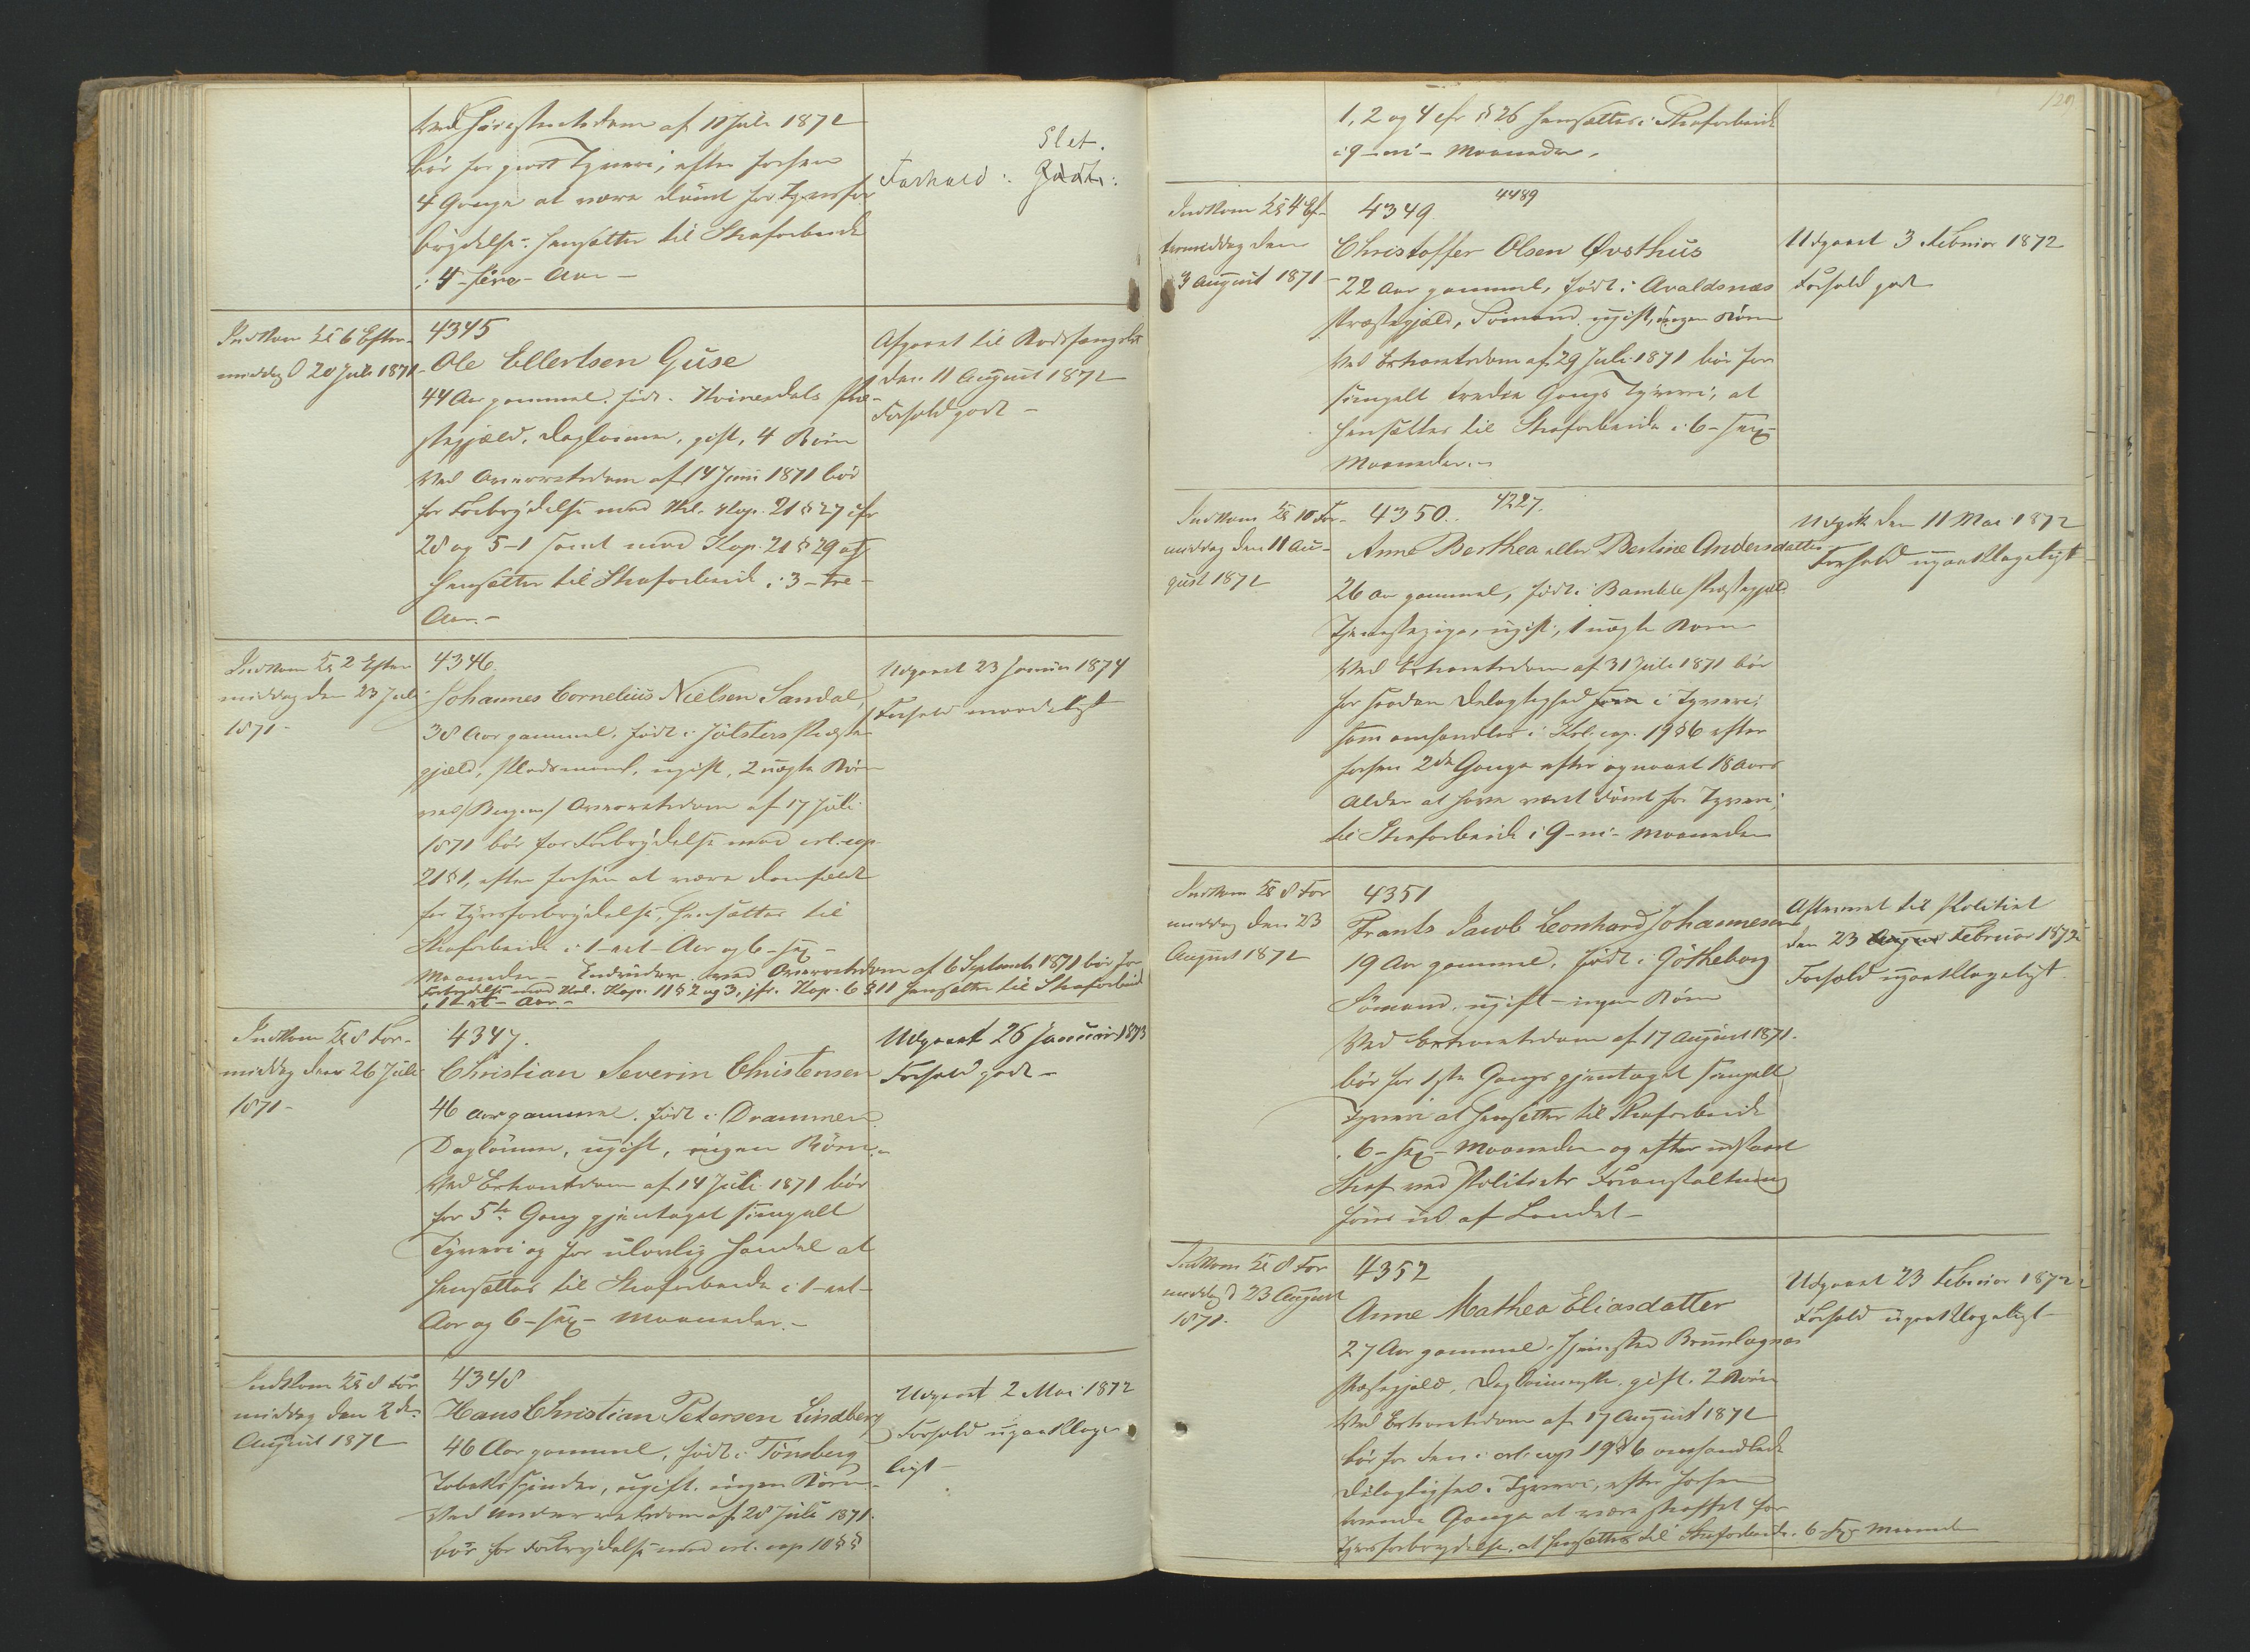 Ved Høiesteretsdom af 11 Juli 1871
bør for groft Tyveri, efter forhen
4 Gange at være dømt for Tyvsfor
brydelse, hensættes til Strafarbeide
i 4 - fire - Aar -
Slet.
Forhold: Godt:
Indkom Kl 6 Efter-
middag d 20 Juli 1871
4345
Ole Ellertsen Guse
44 Aar gammel, født i Kvinesdals Præ-
stegjæld, Daglønner, gift, 4 Børn
Ved Overretsdom af 14 Juni 1871 bør
for Forbrydelse mod Krl. Kap. 21 § 27 cfr
28 og 5-1 samt mod Kap. 21 § 29 at
hensættes til Strafarbeide i 3 - tre -
Aar. -
Afgaaet til Bodsfængslet
den 11 August 1871
Forhold godt -
Indkom Kl 2 Efter
middag den 23 Juli
1871 -
4346.
Johannes Cornelius Nielsen Sandal,
38 Aar gammel, født i Jølsters Præste
gjæld, Pladsmand, ugift, 2 uægte Børn
ved Bergens Overretsdom af 17 Juli
1871 bør for Forbrydelse mod crl. cap
21 § 1, efter forhen at være domfældt
for Tyvsforbrydelse, hensættes til
Strafarbeide i 1 - et - Aar og 6 - sex -
Maaneder - Endvidere ved Overretsdom af 6 September 1871 bør for
Forbrydelse mod Krl. Kap. 11 § 2 og 3, jfr. Kap. 6 § 11 hensættes til Strafarbeid
i 1 - et - Aar. -
Udgaaet 23 Januar 1874
Forhold maadeligt
Indkom Kl 8 For-
middag den 26 Juli
1871 -
4347.
Christian Severin Christensen
46 Aar gammel, født i Drammen
Daglønner, ugift, ingen Børn. -
Ved Extraretsdom af 14 Juli 1871 bør
for 5te Gang gjentaget simpelt
Tyveri og for ulovlig Handel at
hensættes til Strafarbeide i 1 - et -
Aar og 6 - sex - Maaneder. -
Udgaaet 26 Januar 1873
Forhold godt -
Indkom Kl 8 For
middag den 2de
August 1871
4348
Hans Christian Petersen Lindberg
46 Aar gammel, født i Tønsberg
Tobaksspinder, ugift, ingen Børn -
Ved Underretsdom af 28 Juli 1871
bør for Forbrydelse mod crl. cap 10 §§
Udgaaet 2 Mai 1872
Forhold upaaklage
ligt -
129
1, 2 og 4 cfr § 26 hensættes i Strafarbeide
i 9 - ni - Maaneder.
Indkom Kl 4 Ef-
termiddag den
3 August 1871 -
4349. 4489
Christoffer Olsen Øvsthus
22 Aar gammel, født i Avaldsnæs
Præstegjæld, Sømand, ugift, ingen Børn
Ved Extraretsdom af 29 Juli 1871 bør for
simpelt tredie Gangs Tyveri, at
hensættes til Strafarbeide i 6 - sex -
Maaneder. -
Udgaaet 3 Februar 1872
Forhold godt
Indkom Kl 10 For-
middag den 11 Au-
gust 1871
4350. 4227.
Anne Berthea eller Bertine Andersdatter
26 Aar gammel, født i Bamble Præstegjæld
Tjenestepige, ugift, 1 uægte Barn
Ved Extraretsdom af 31 Juli 1871 bør
for saadan Delagtighed som i Tyveri,
som omhandles i Krl. cap. 19 § 6 efter
forhen 2de Gange efter opnaaet 18 Aars
Alder at have været dømt for Tyveri,
til Strafarbeide i 9 - ni - Maaneder
Udgik den 11 Mai 1872
Forhold upaaklageligt
Indkom Kl 8 For
middag den 23
August 1871
4351
Frants Jacob Leonhard Johannesen
19 Aar gammel, født i Gøtheborg
Sømand, ugift - ingen Børn
Ved Extraretsdom af 17 August 1871.
bør for 1ste Gangs gjentaget simpelt
Tyveri at hensættes til Strafarbeide
i 6 - sex - Maaneder og efter udstaaet
Straf ved Politiets Foranstaltning
føres ud af Landet -
Afleveret til Politiet
den 23 August Februar 1872
Forhold upaaklageligt
Indkom Kl 8 For
middag d 23 August
1871.
4352
Anne Mathea Eliasdatter
27 Aar gammel, Hjemsted Brunlagnæs
Præstegjæld, Daglønnerske, gift, 2 Børn
Ved Extraretsdom af 17 August 1871
bør for den i crl. cap 19 § 6 omhandlede
Delagtighed i Tyveri, efter forhen
trende Gange at være straffet for
Tyvsforbrydelse, at hensættes til Strafarbeide i 6 sex Maaneder
Udgaaet 23 Februar 1872
Forhold upaaklageligt -